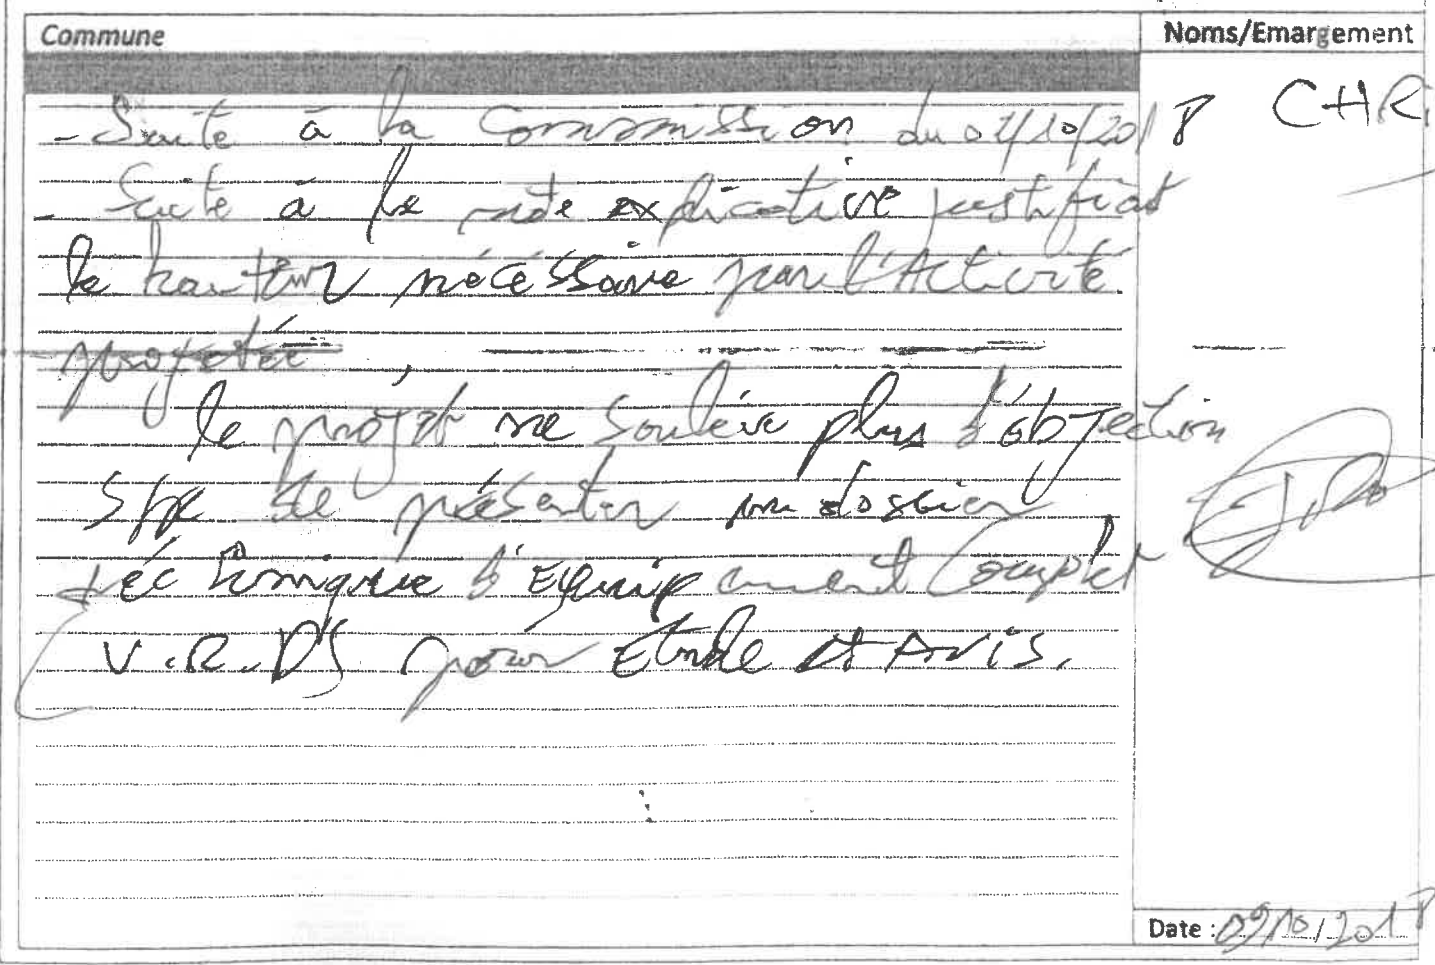 Commune
Noms/Emargement
- Suite à la Commission du 02/10/2018
CHRi
- Suite à la note explicative justifiat
la hauteur nécéssaire pour l'Activité
projetée,
le projet ne soulève plus d'objection
de présenter un dossier
téchnique d'Equipement Complet
V.R.D'S pour Etude et Avis.
Date : 09/10/2018